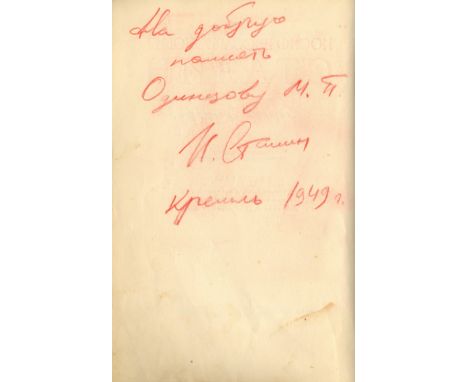 На добрую
память
Одинцову М. П.
И. Сталин
Кремль 1949 г.